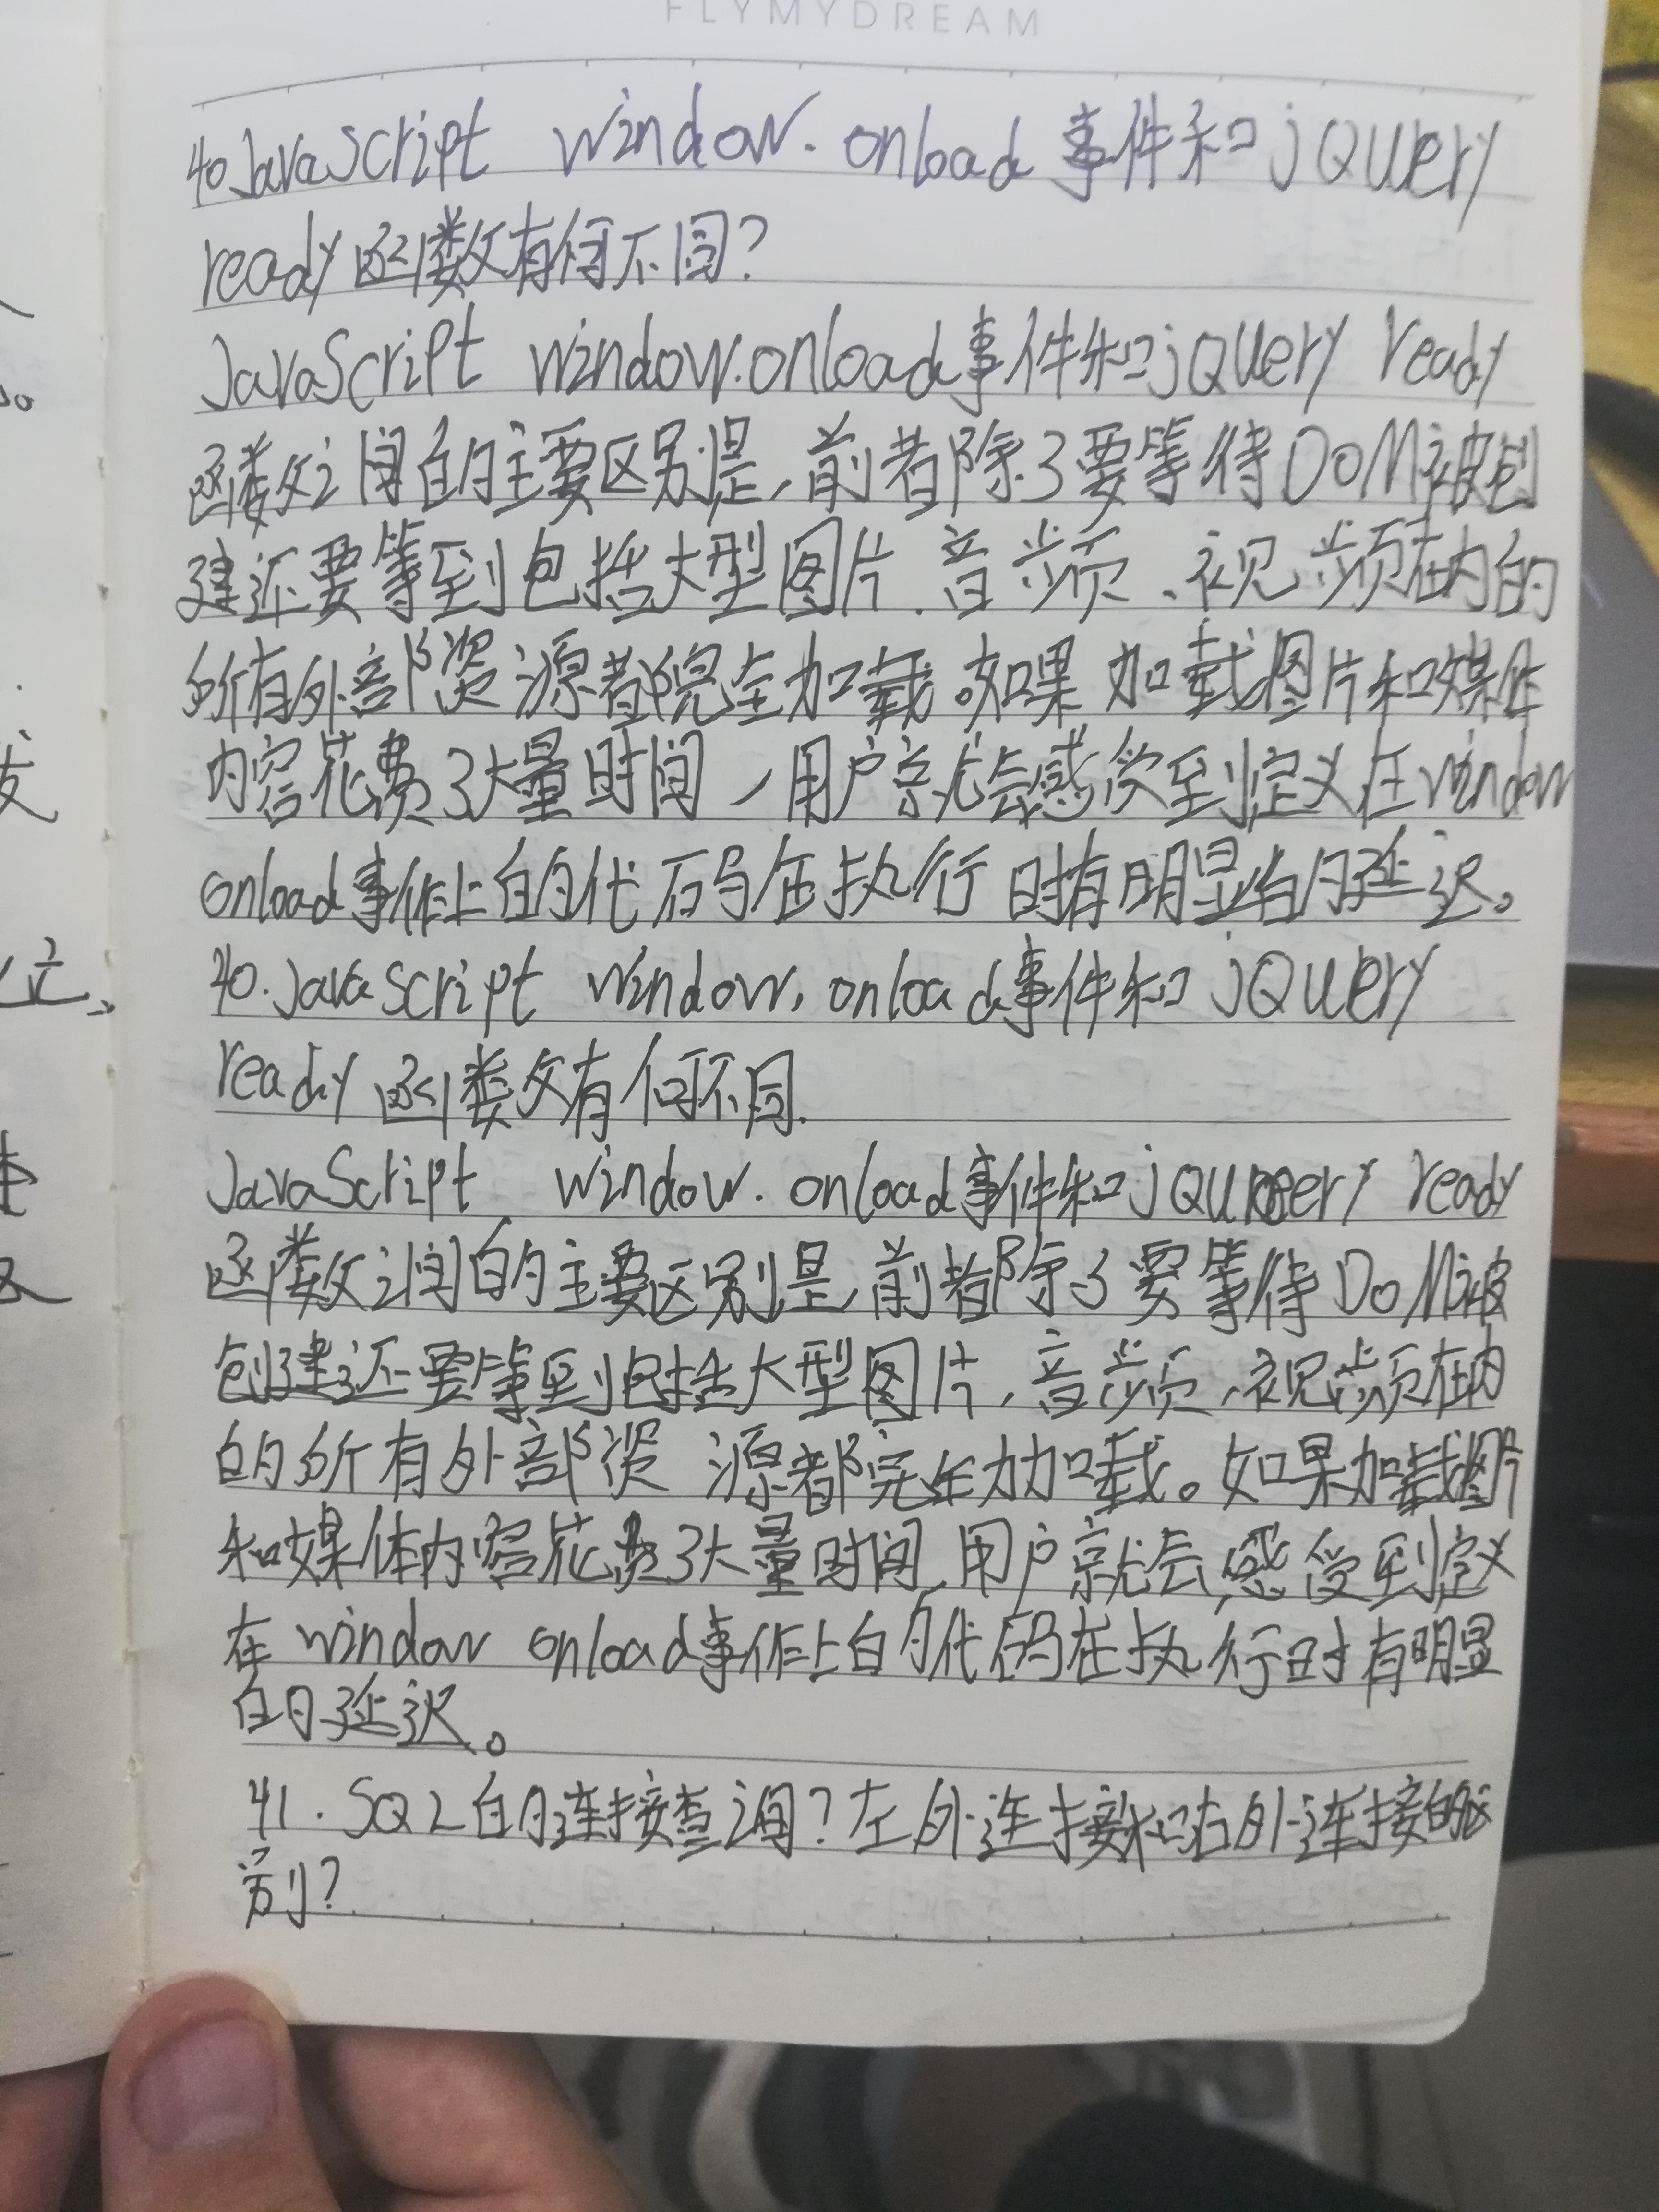 FLYMYDREAM
40JavaScript window.onload事件和jQuery
ready函数有何不同?
JavaScript window.onload事件和jQuery ready
函数之间的主要区别是,前者除了要等待DOM被创
建还要等到包括大型图片、音频、视频在内的
所有外部资源都完全加载。如果加载图片和媒体
内容花费了大量时间,用户就会感受到定义在window
onload事件上的代码在执行时有明显的延迟。
40.JavaScript window.onload事件和jQuery
ready函数有何不同.
JavaScript window.onload事件和jQuery ready
函数之间的主要区别是,前者除了要等待DOM被
创建还要等到包括大型图片、音频、视频在内
的所有外部资源都完全加载。如果加载图片
和媒体内容花费了大量时间,用户就会感受到定义
在window onload事件上的代码在执行时有明显
的延迟。
41.SQL的连接查询?左外连接和右外连接的区
别?